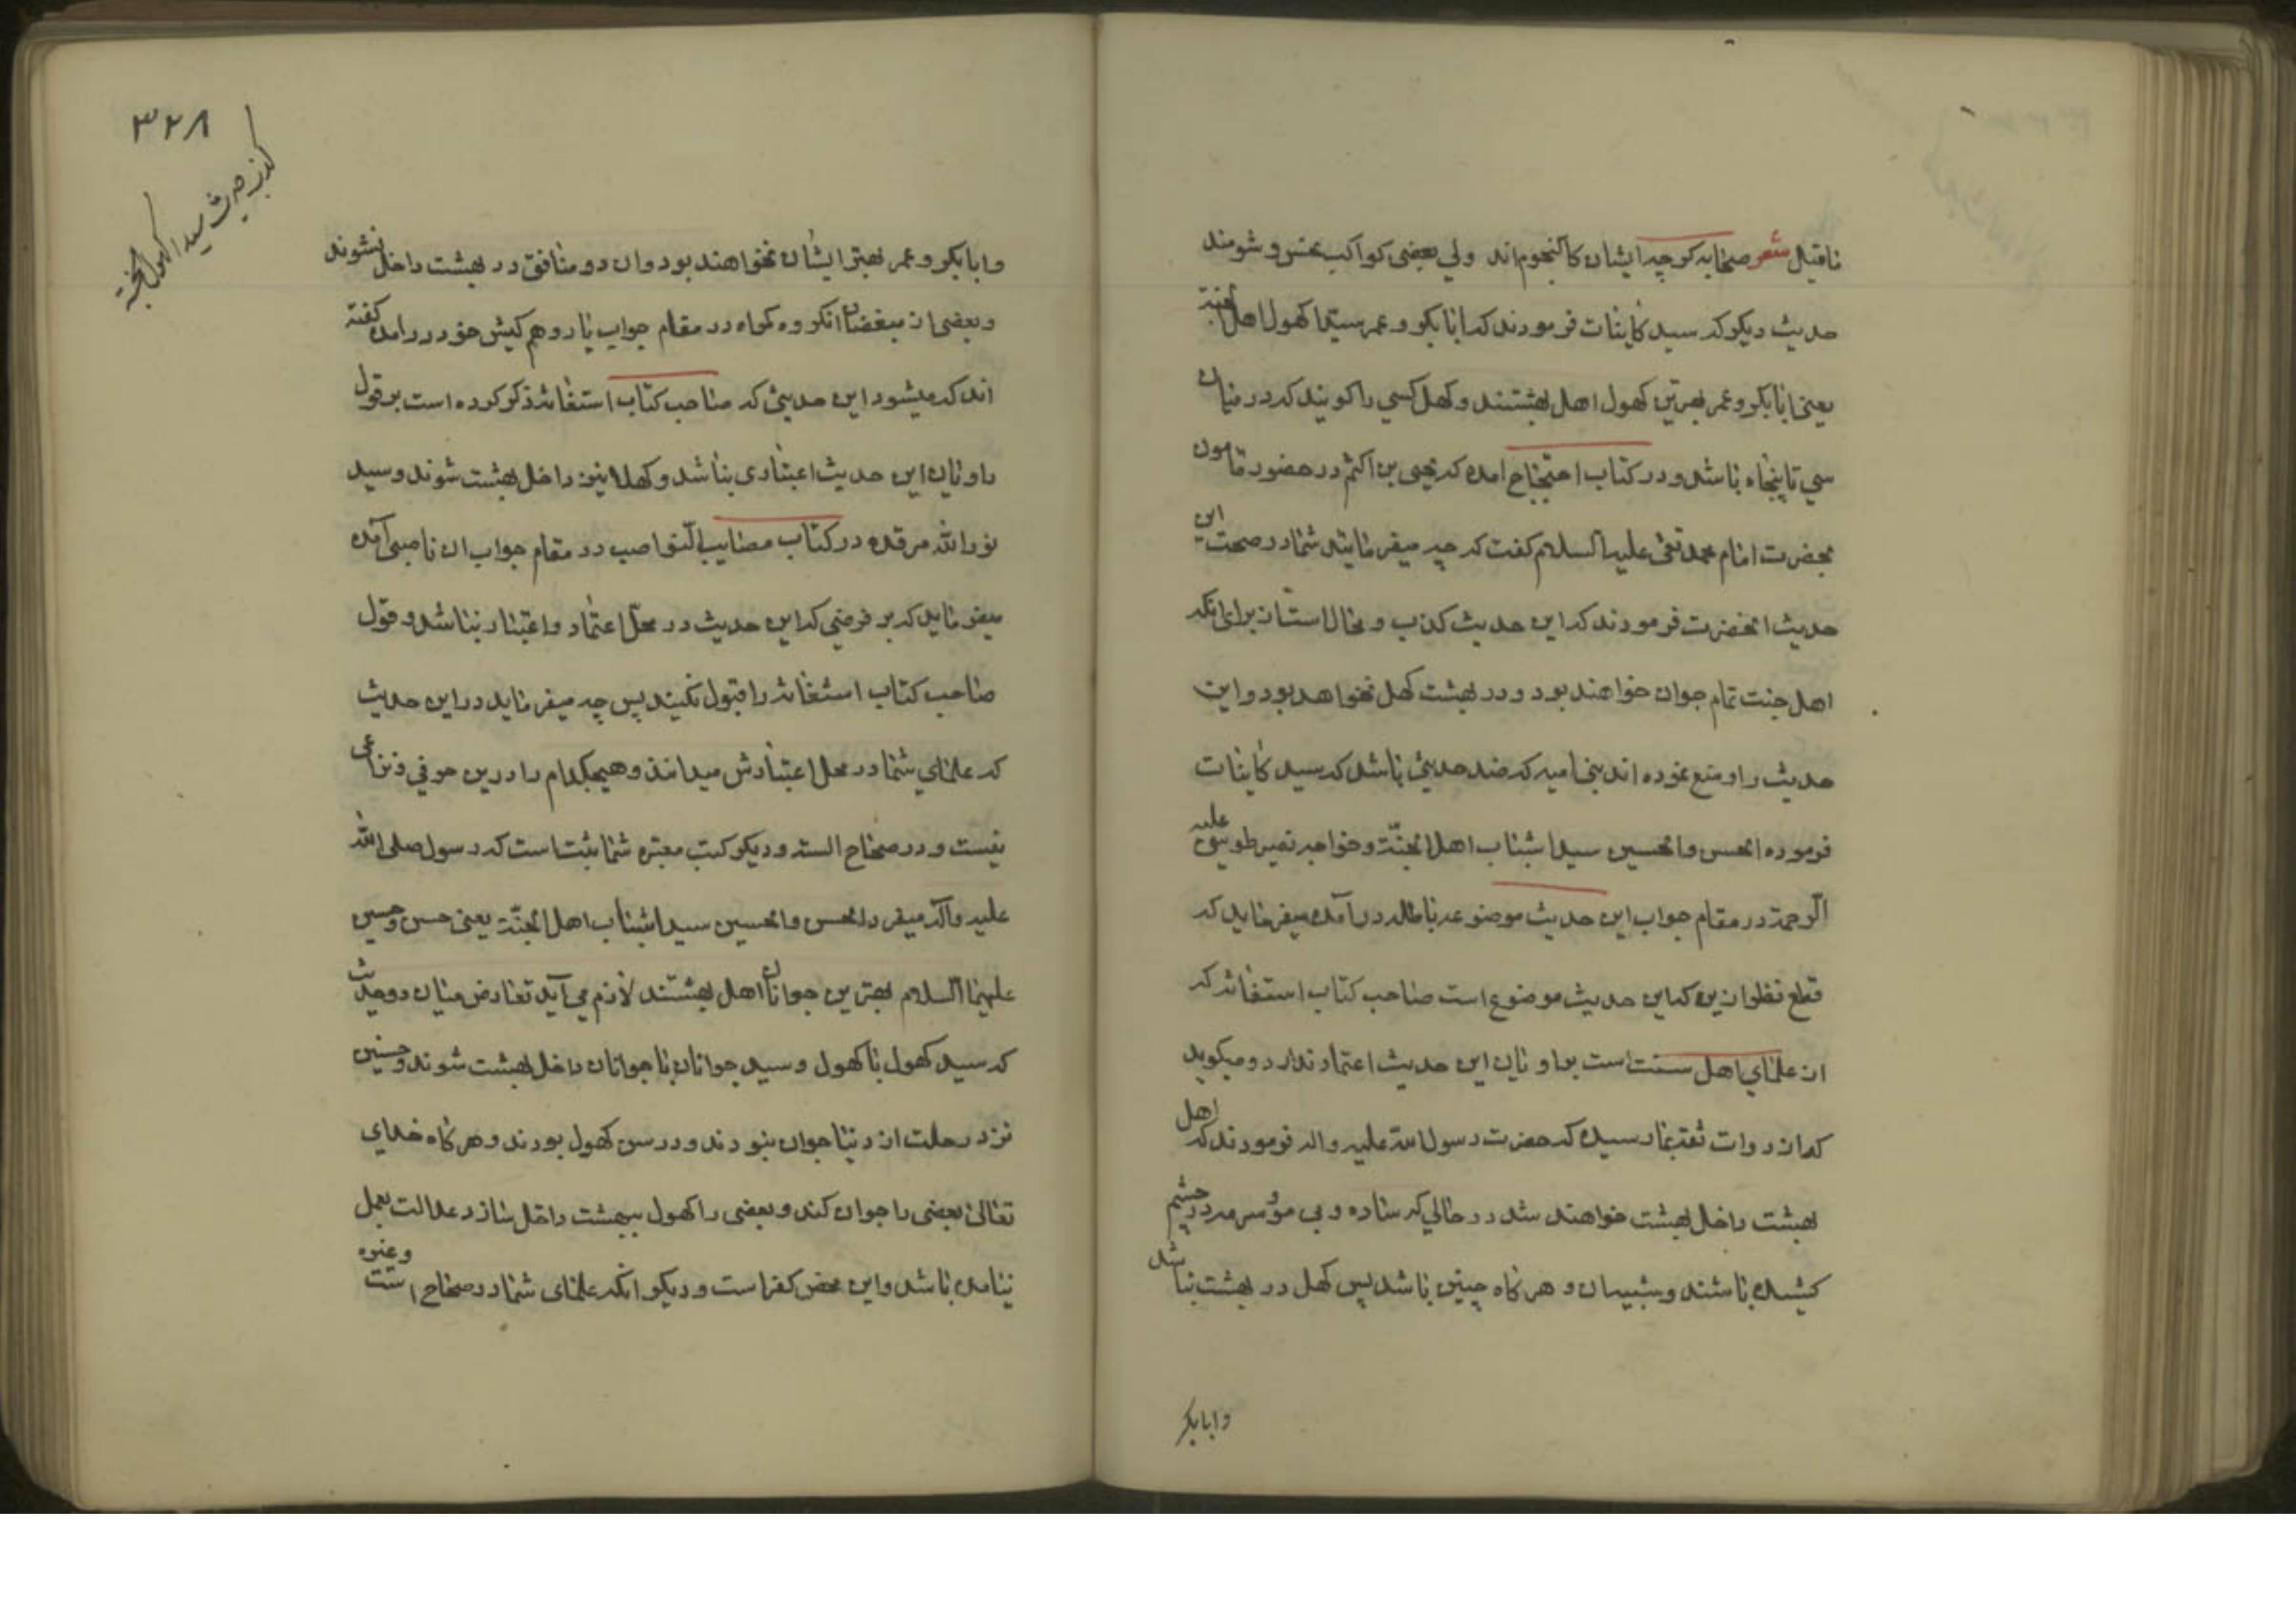 ناقیل شعر صحابه گرچه ایشان کالنجوم‌اند ولی بعضی کواکب نحس و شومند
حدیث دیگر که سید کاینات فرمودند که ابابکر و عمر سیدا کهول اهل الجنة
یعنی ابابکر و عمر بهترین کهول اهل بهشتند و کهل کسی را کویند که در میان
سی تا پنجاه باشد و در کتاب احتجاج امده که یحیی بن اکثم در حضور مامون
بحضرت امام محمد تقی علیه السلام کفت که چه میفرمایید شما در صحت این
حدیث انحضرت فرمودند که این حدیث کذب و محال است از برای انکه
اهل جنت تمام جوان خواهند بود و در بهشت کهل نخواهد بود و این
حدیث را وضع نموده‌اند بنی امیه که ضد حدیثی باشد که سید کاینات
فرموده الحسن والحسین سیدا شباب اهل الجنّة و خواجه نصیر طوسی علیه
الرحمة در مقام جواب این حدیث موضوعه باطله در آمده میفرماید که
قطع نظر از این که این حدیث موضوع است صاحب کتاب استغاثه که
از علمای اهل سنت است بر اویان این حدیث اعتماد ندارد و میکوید
که از روات ثقه بما رسیده که حضرت رسول الله علیه واله فرمودند که اهل
بهشت داخل بهشت خواهند شد در حالی که ساده و بی مو و سرمه در چشم
کشیده باشند و شبیان و هر کاه چنین باشد پس کهل در بهشت نباشد
وابابکر
۳۲۸
کذب حدیث سیدا کهول الجنة
و ابابکر و عمر بهتر ایشان نخواهند بود و ان دو منافق در بهشت داخل نشوند
و بعضی از مبغضان انکروه کمراه در مقام جواب یار و هم کیش خود در امده کفته
اند که میشود این حدیثی که صاحب کتاب استغاثه ذکر کرده است بر قول
راویان این حدیث اعتباری نباشد و کهلا نیز داخل بهشت شوند و سید
نورالله مرقده در کتاب مصایب النواصب در مقام جواب ان ناصبی آمده
میفرماید که بر فرضی که این حدیث در محل اعتماد و اعتبار نباشد و قول
صاحب کتاب استغاثه را قبول نکنید پس چه میفرماید در این حدیث
که علمای شما در محل اعتبارش میدانند و هیچکدام را درین حرفی و نزاعی
نیست و در صحاح السته و دیکر کتب معتبره شما ثبت است که رسول صلی الله
علیه وآله میفرماید الحسن والحسین سیدا شباب اهل الجنّة یعنی حسن و حسین
علیهما السلام بهترین جوانان اهل بهشتند لازم می‌آید تعارض میان دو حدیث
که سید کهول با کهول و سید جوانان با جوانان داخل بهشت شوند و حسنین
نزد رحلت از دنیا جوان نبودند و در سن کهول بودند و هر کاه خدای
تعالی بعضی را جوان کند و بعضی را کهول ببهشت داخل سازد عدالت بعمل
نیامده باشد و این محض کفر است و دیکر انکه علمای شما در صحاح الستة و غیره